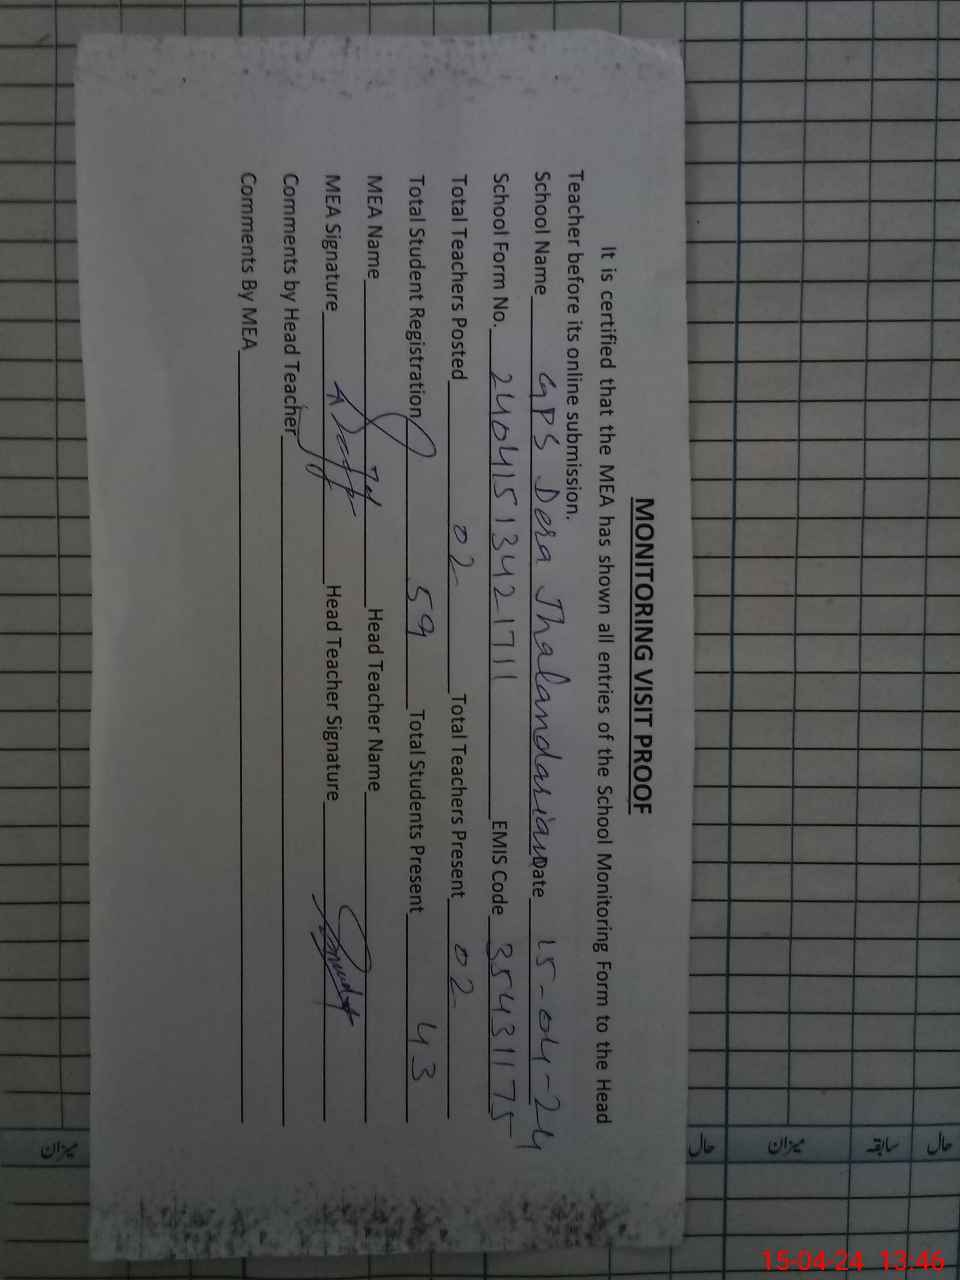 MONITORING VISIT PROOF
It is certified that the MEA has shown all entries of the School Monitoring Form to the Head
Teacher before its online submission.
School Name GPS Dera Jhalandarian Date 15-04-24
School Form No. 2404151342 1711 EMIS Code 35431175
Total Teachers Posted 02 Total Teachers Present 02
Total Student Registration 59 Total Students Present 43
MEA Name Head Teacher Name
MEA Signature Head Teacher Signature
Comments by Head Teacher
Comments By MEA
حال
سابقہ
میزان
حال
میزان
15-04-24 13:46